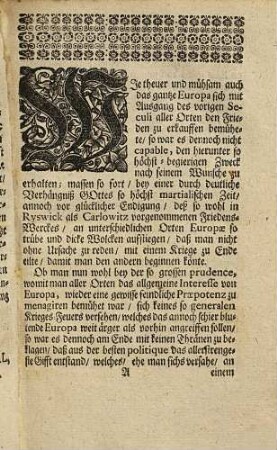 WIe theuer und mühsam auch
das gantze Europa sich mit
Ausgang des vorigen Se-
culi aller Orten den Frie-
den zu erkauffen bemühe-
te/ so war es dennoch nicht
capable, den hierunter so
höchst-begierigen Zweck
nach seinem Wunsche zu
erhalten/ massen so fort/ bey einer durch deutliche
Verhängniß GOttes so höchst martialischen Zeit/
annoch vor glücklicher Endigung/ deß so wohl in
Ryswick als Carlowitz vorgenommenen Friedens-
Werckes/ an unterschiedlichen Orten Europæ so
trübe und dicke Wolcken auffstiegen/ daß man nicht
ohne Ursache zu reden/ mit einem Kriege zu Ende
eilte/ damit man den andern beginnen könte.
Ob man nun wohl bey der so grossen prudence,
womit man aller Orten das allgemeine Interesse von
Europa, wieder eine gewisse feindliche Præpotenz zu
menagiren bemühet war/ sich keines so generalen
Krieges-Feuers versehen/ welches das annoch schier blu-
tende Europa weit ärger als vorhin angreiffen sollen/
so war es dennoch am Ende mit keinen Thränen zu be-
klagen/ daß aus der besten politique das allerstrenge-
ste Gifft entstand/ welches/ ehe man sichs versahe/ an
A einem